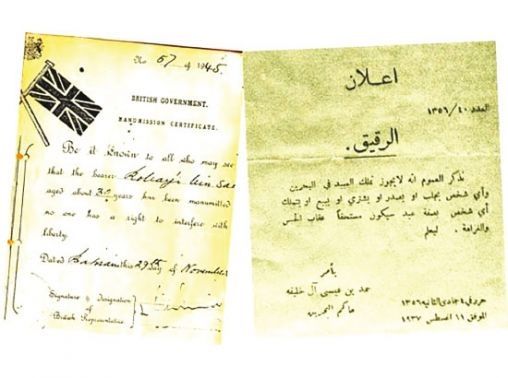 No 67 of 1945.
BRITISH GOVERNMENT.
MANUMISSION CERTIFICATE.
Be it Known to all who may see
that the bearer bin
aged about 30 years has been manumitted
no one has a right to interfere with
liberty.
Dated Bahrain this 29th day of November
Signature & designation
of
British Representative
اعلان
العدد ٤٠/١٣٥٦
الرقيق.
نذكر العموم انه لايجوز تملك العبيد في البحرين
وأي شخص يجلب او يصدر او يشتري او يبيع او يتملك
أي شخص بصفة عبد سيكون مستحقاً عقاب الحبس
والغرامة . ليعلم
بأمر
حمد بن عيسى آل خليفه
حاكم البحرين
حرر في ٤ جمادى الثانيه ١٣٥٦
الموفق ١١ اغسطس ١٩٣٧